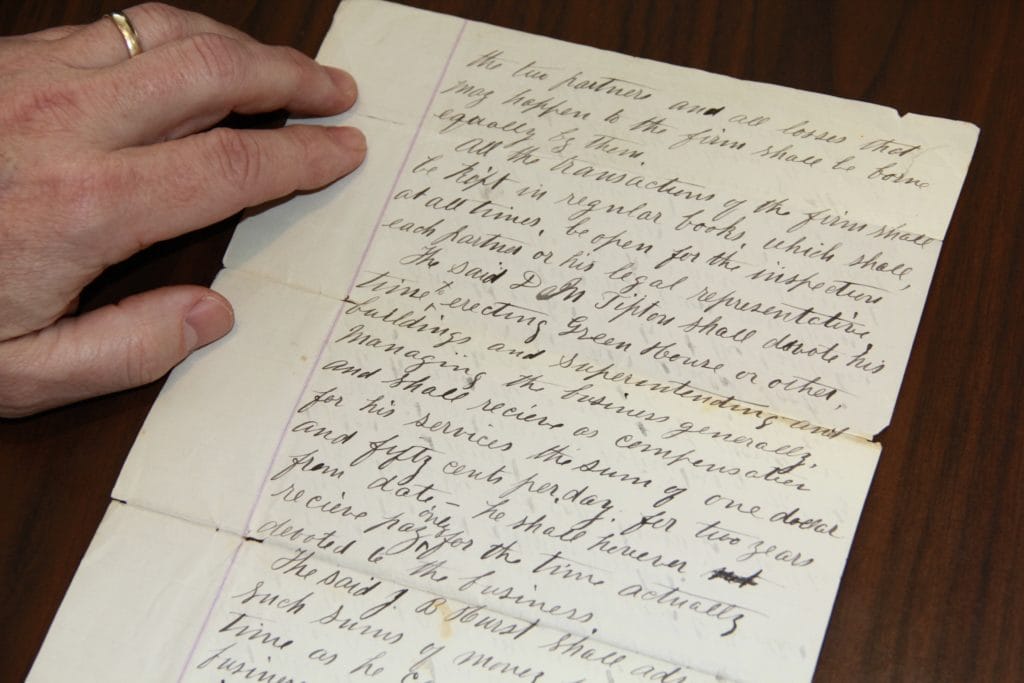 the two partners and all losses that
may happen to the firm shall be borne
equally by them.
All the transactions of the firm shall
be kept in regular books, which shall,
at all times, be open for the inspection
each partner or his legal representative,
The said D M Tipton shall devote his
time to erecting Green House or other,
buildings and superintending and
managing the business generally,
and shall recieve as compensation
for his services the sum of one dollar
and fifty cents per day. for two years
from date, he shall however
recieve pay only for the time actually
devoted to the business.
The said J. B Hurst shall
such sums of money
time as he